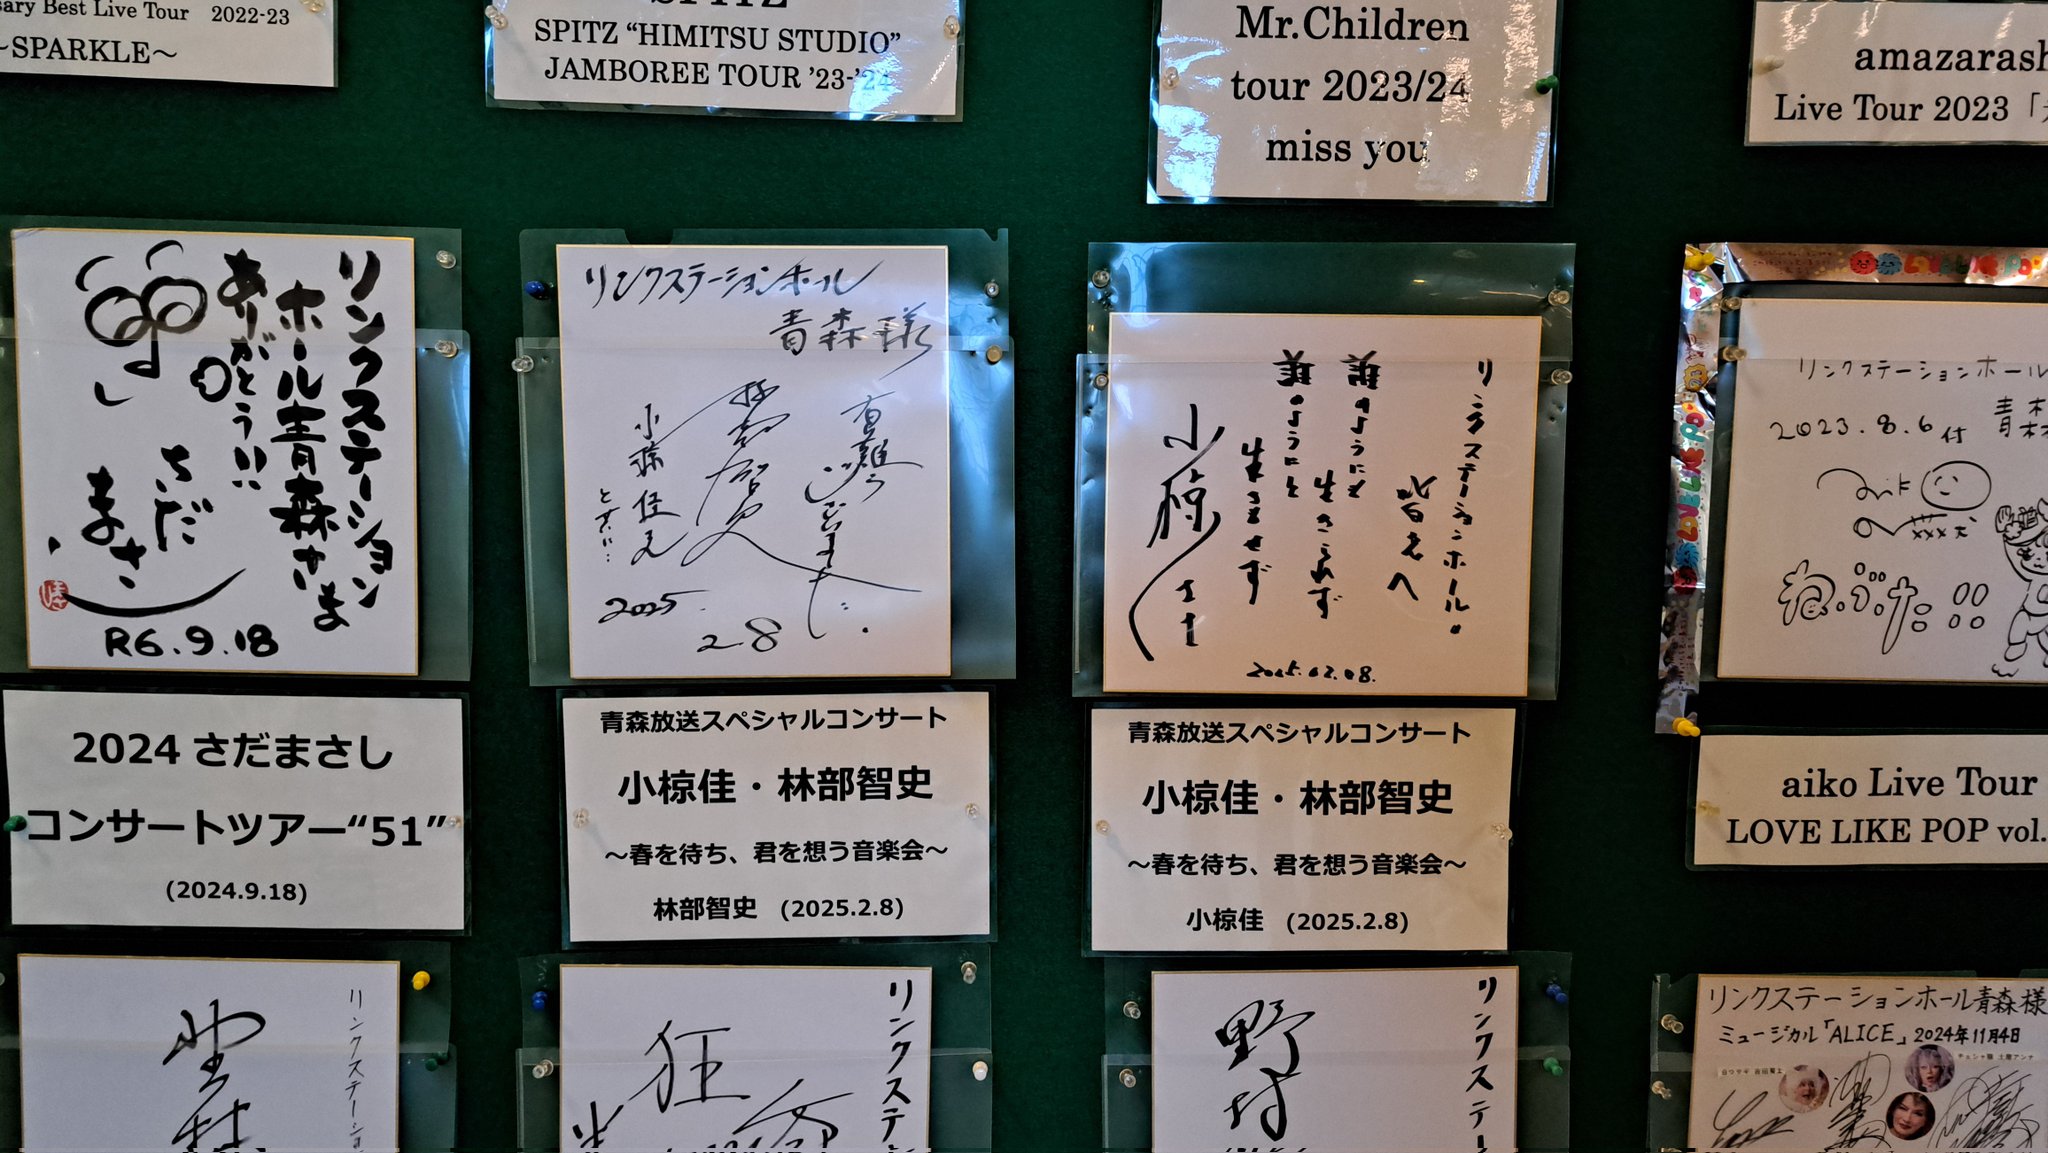 sary Best Live Tour 2022-23
～SPARKLE～
SPITZ
SPITZ “HIMITSU STUDIO”
JAMBOREE TOUR ’23-’24
Mr.Children
tour 2023/24
miss you
amazarash
Live Tour 2023「
リンクステーション
ホール青森さま
ありがとう!!
さだ
まさし
R6.9.18
2024 さだまさし
コンサートツアー“51”
(2024.9.18)
リンクステーションホール
青森様
有難うございました
林部智史
小椋佳さんと
2025.
2.8
青森放送スペシャルコンサート
小椋佳・林部智史
～春を待ち、君を想う音楽会～
林部智史 (2025.2.8)
リンクステーションホール。
皆さんへ
のようにも
生きられず
のようにと
生きもせず
小椋 佳
2025.02.08.
青森放送スペシャルコンサート
小椋佳・林部智史
～春を待ち、君を想う音楽会～
小椋佳 (2025.2.8)
LOVE LIKE POP
リンクステーションホール
青森
2023.8.6付
ねぶた!!
aiko Live Tour
LOVE LIKE POP vol.
リンクステーショ
リンクステー
狂
リンクステー
野村
リンクステーションホール青森様
ミュージカル「ALICE」2024年11月4日